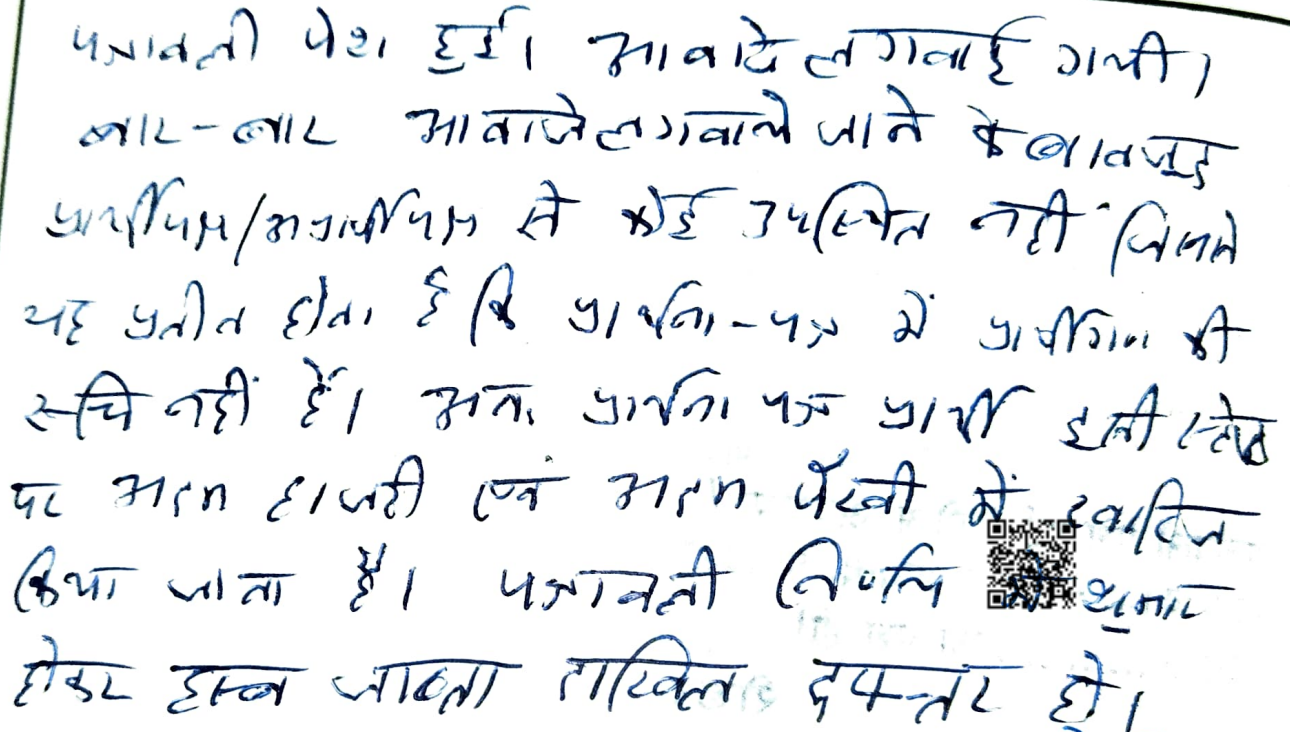 पत्रावली पेश हुई। आवाजे लगवाई गयी।
बार-बार आवाजे लगवाये जाने के बावजूद
प्रार्थीपक्ष/अप्रार्थीपक्ष से कोई उपस्थित नहीं जिससे
यह प्रतीत होता है कि प्रार्थना-पत्र में प्रार्थीगण की
रूचि नहीं है। अतः प्रार्थना पत्र प्रार्थी इसी स्टेज
पर अदम हाजरी एवं अदम पैरवी में खारिज
किया जाता है। पत्रावली निर्णित में शुमार
होकर हस्ब जाब्ता दाखिल दफ्तर हो।